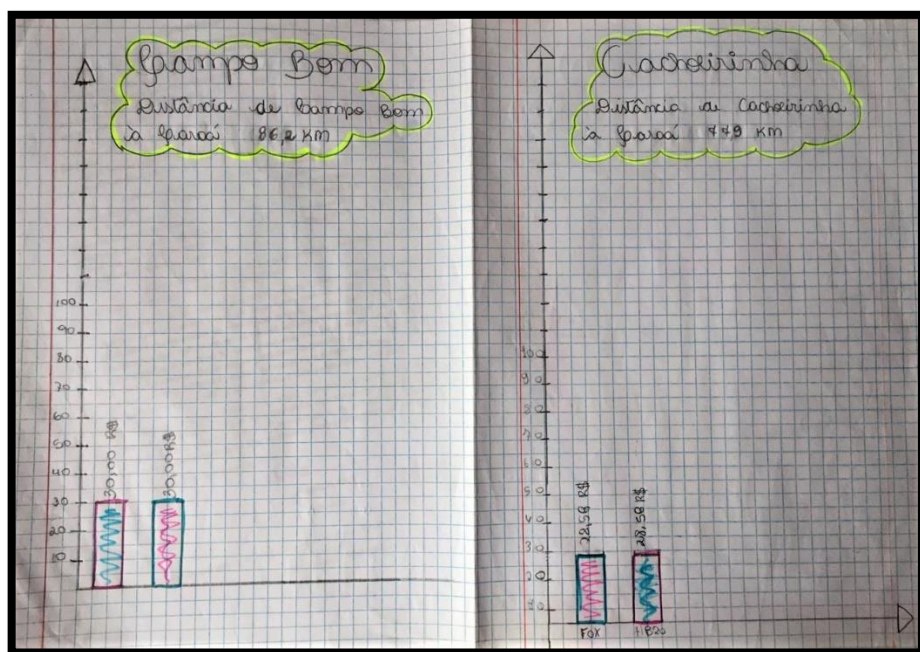 Campo Bom
Distância de Campo Bom
à Caraá 86,2 Km
100
90
80
70
60
50
40
30
20
10
30,00 R$
30,00 R$
Cachoeirinha
Distância de Cachoeirinha
à Caraá 77,9 km
100
90
80
70
60
50
40
30
20
10
28,58 R$
28,58 R$
FOX HB20